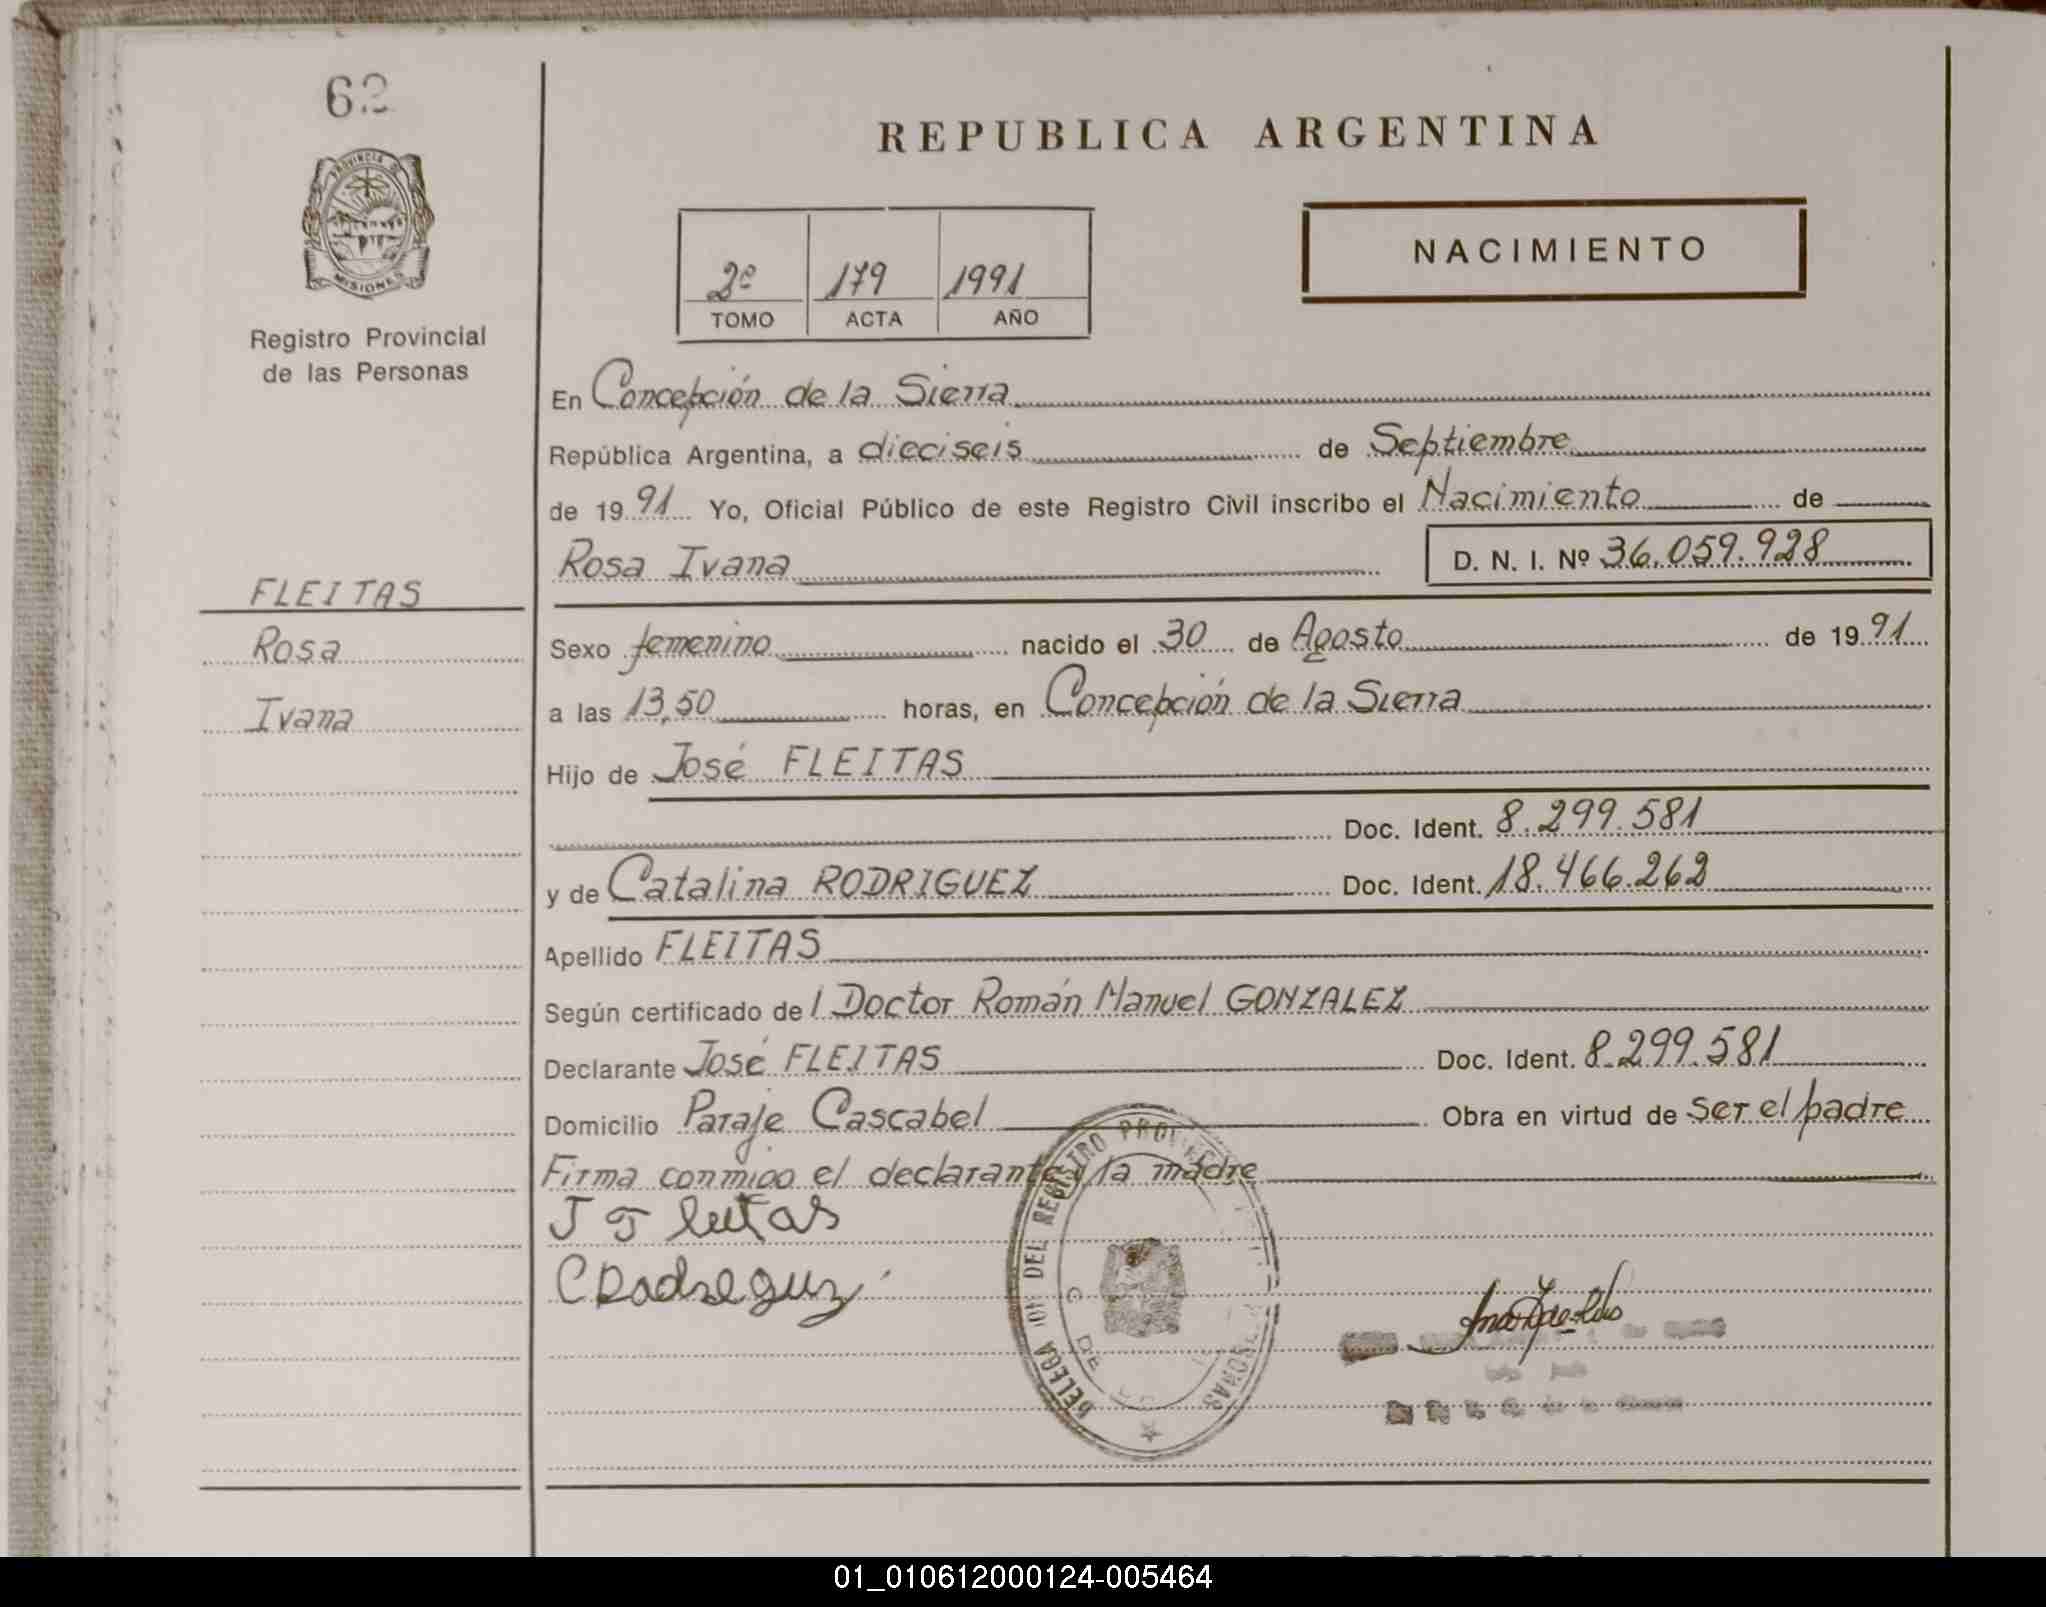 62
PROVINCIA DE
MISIONES
Registro Provincial
de las Personas
FLEITAS
Rosa
Ivana
REPUBLICA ARGENTINA
2º 179 1991
TOMO ACTA AÑO
NACIMIENTO
En Concepción de la Sierra
República Argentina, a dieciseis de Septiembre
de 19 91 Yo, Oficial Público de este Registro Civil inscribo el Nacimiento de
Rosa Ivana D. N. I. Nº 36.059.928
Sexo femenino nacido el 30 de Agosto de 19 91
a las 13,50 horas, en Concepción de la Sierra
Hijo de José FLEITAS
Doc. Ident. 8.299.581
y de Catalina RODRIGUEZ Doc. Ident. 18.466.262
Apellido FLEITAS
Según certificado de l Doctor Román Manuel GONZALEZ
Declarante José FLEITAS Doc. Ident. 8.299.581
Domicilio Paraje Cascabel Obra en virtud de ser el padre
Firma conmigo el declarante y la madre
J F leitas
C Rodreguz
DEL REGISTRO
01_010612000124-005464